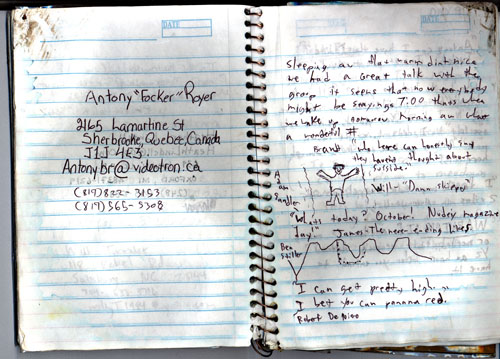 DATE
Antony "Focker" Royer
2165 Lamartine St
Sherbrooke, Quebec, Canada
J1J 4E3
Antonybr@videotron.ca
(819) 822-3153
(819) 565-5308
DATE
Sleeping a that warm
we had a great talk with the
group it seems that now everybody
might be saying 7:00 thats when
we wake up tomorrow morning
a wonderful #
Brandt "who here can honestly say
they haven't thought about
suicide."
Adam
Sandler
Will - "Damn skippy"
"Whats today? October! Nudey magazine
day!" James - The never ending lines.
Ben
Stiller
I can get pretty high
I bet you can panama red.
Robert De Niro